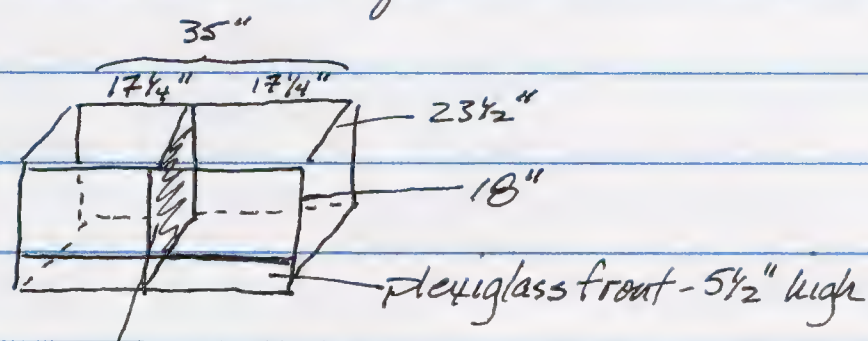 35"
17 1/4" 17 1/4"
23 1/2"
18"
plexiglass front - 5 1/2" high